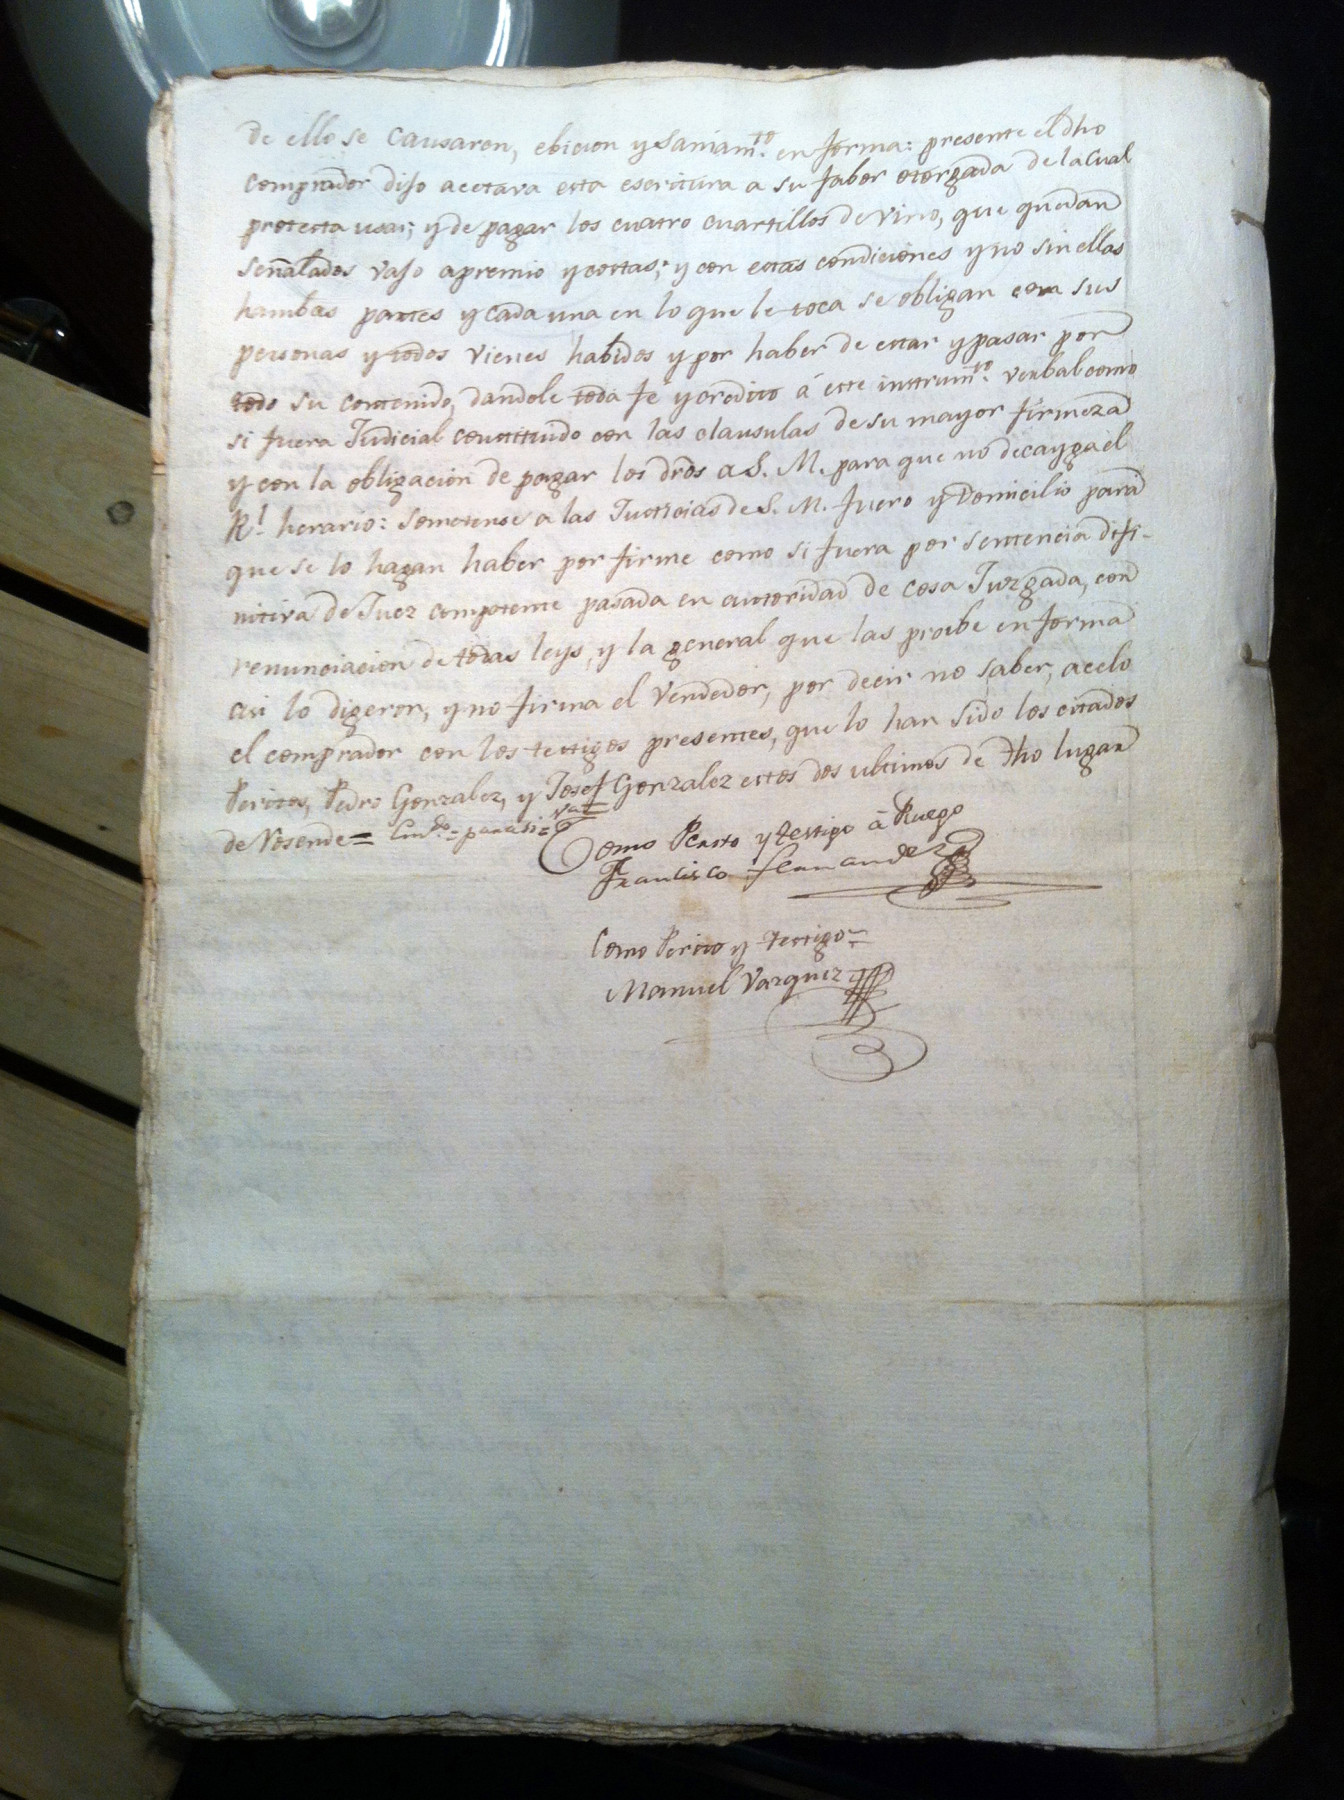 de ello se causaron, ebicion y saniam.to en forma: presente el dho
comprador dijo acetava esta escritura a su fabor otorgada de la cual
protesta usar; y de pagar los cuatro cuartillos de vino, que quedan
señalados vajo apremio y costas; y con estas condiciones y no sin ellas
hambas partes y cada una en lo que le toca se obligan con sus
personas y todos vienes habidos y por haber de estar y pasar por
todo su contenido, dandole toda fé y credito á este instrum.to verbal como
si fuera Judicial constituido con las clausulas de su mayor firmeza
y con la obligacion de pagar los dros a S. M. para que no decayga el
R.l herario: sometense a las Justicias de S. M. fuero y Domicilio para
que se lo hagan haber por firme como si fuera por sentencia difi-
nitiva de Juez competente pasada en autoridad de cosa Juzgada, con
renunciacion de todas leys, y la general que las proibe en forma
asi lo digeron, y no firma el vendedor, por decir no saber, acelo
el comprador con los testigos presentes, que lo han sido los citados
Peritos, Pedro Gonzalez, y Josef Gonzalez estos dos ultimos de dho lugar
de Vosende=
Como Perito y testigo á Ruego
Francisco Fernandez
Como Perito y testigo
Manuel Vazquez